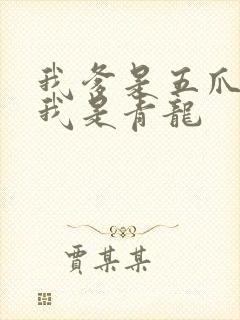 我爹是五爪
我是青龍
賈某某